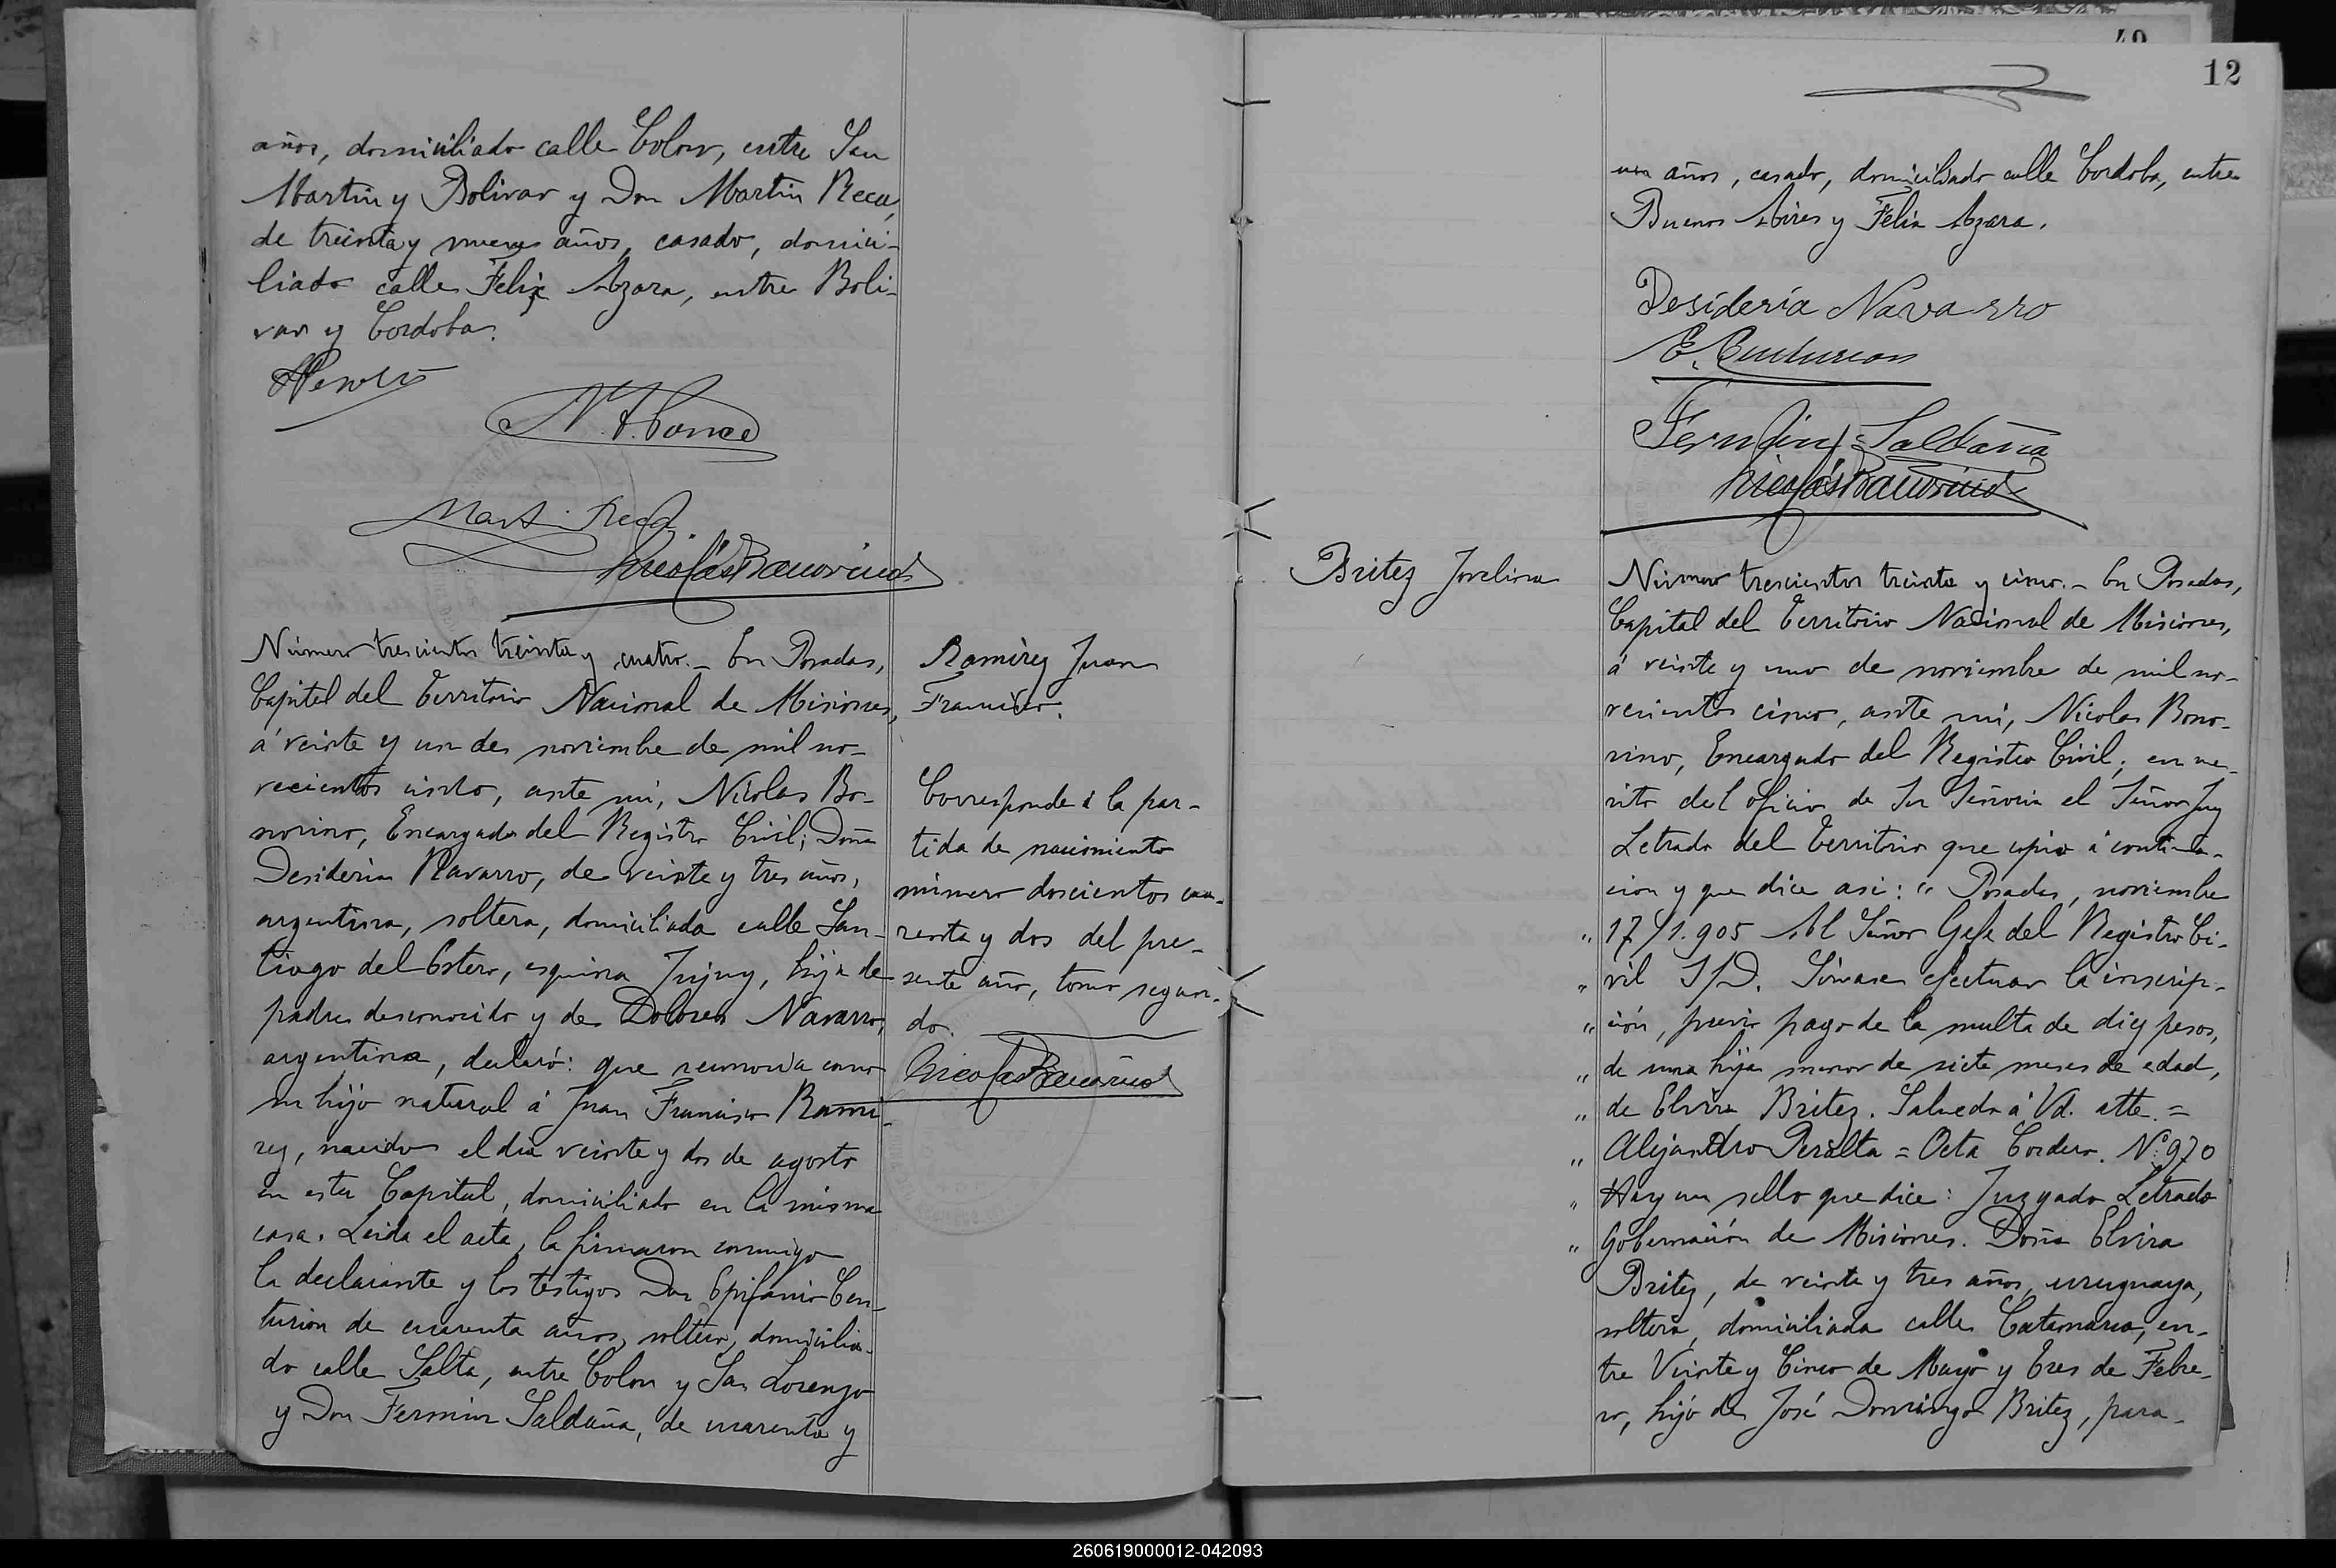 años, domiciliado calle Colon, entre San
Martin y Bolivar y Don Martin Reca,
de treinta y nueve años, casado, domici-
liado calle Felix Azara, entre Boli-
var y Cordoba.
N. A. Ponce
Martin Reca
Nicolás Bonorino
Número trescientos treinta y cuatro.- En Posadas,
Capital del Territorio Nacional de Misiones,
á veinte y un de noviembre de mil no-
vecientos cinco, ante mi, Nicolas Bo-
norino, Encargado del Registro Civil; Doña
Desideria Navarro, de veinte y tres años,
argentina, soltera, domiciliada calle San-
tiago del Estero, esquina Jujuy, hija de
padre desconocido y de Dolores Navarro,
argentina, declaró: que reconocia como
su hijo natural á Juan Francisco Rami-
rez, nacido el dia veinte y dos de agosto
en esta Capital, domiciliado en la misma
casa. Leida el acta, la firmaron conmigo
la declarante y los testigos Don Epifanio Cen-
turion de cuarenta años, soltero, domicilia-
do calle Salta, entre Colon y San Lorenzo
y Don Fermin Saldaña, de cuarenta y
Ramirez Juan
Francisco.
Corresponde á la par-
tida de nacimiento
número doscientos cua-
renta y dos del pre-
sente año, tomo segun-
do.
Nicolás Bonorino
12
un años, casado, domiciliado calle Cordoba, entre
Buenos Aires y Felix Azara.
Desideria Navarro
E. Centurion
Fermin Saldaña
Nicolás Bonorino
Britez Jovelina
Número trescientos treinta y cinco.- En Posadas,
Capital del Territorio Nacional de Misiones,
á veinte y uno de noviembre de mil no-
vecientos cinco, ante mi, Nicolas Bono-
rino, Encargado del Registro Civil; en me-
rito del oficio de Su Señoria el Señor Juez
Letrado del Territorio que copio á continua-
cion y que dice asi: " Posadas, noviembre
" 17/1.905 Al Señor Gefe del Registro Ci-
" vil S/D. Sirvase efectuar la inscrip-
" ción, previo pago de la multa de diez pesos,
" de una hija menor de siete meses de edad,
" de Elvira Britez. Saluda á Vd. atte. =
" Alejandro Peralta = Octa Cordero. Nº 970
" Hay un sello que dice: Juzgado Letrado
" Gobernación de Misiones. Doña Elvira
Britez, de veinte y tres años, uruguaya,
soltera, domiciliada calle Catamarca, en-
tre Veinte y Cinco de Mayo y Tres de Febre-
ro, hijo de José Domingo Britez, para-
260619000012-042093